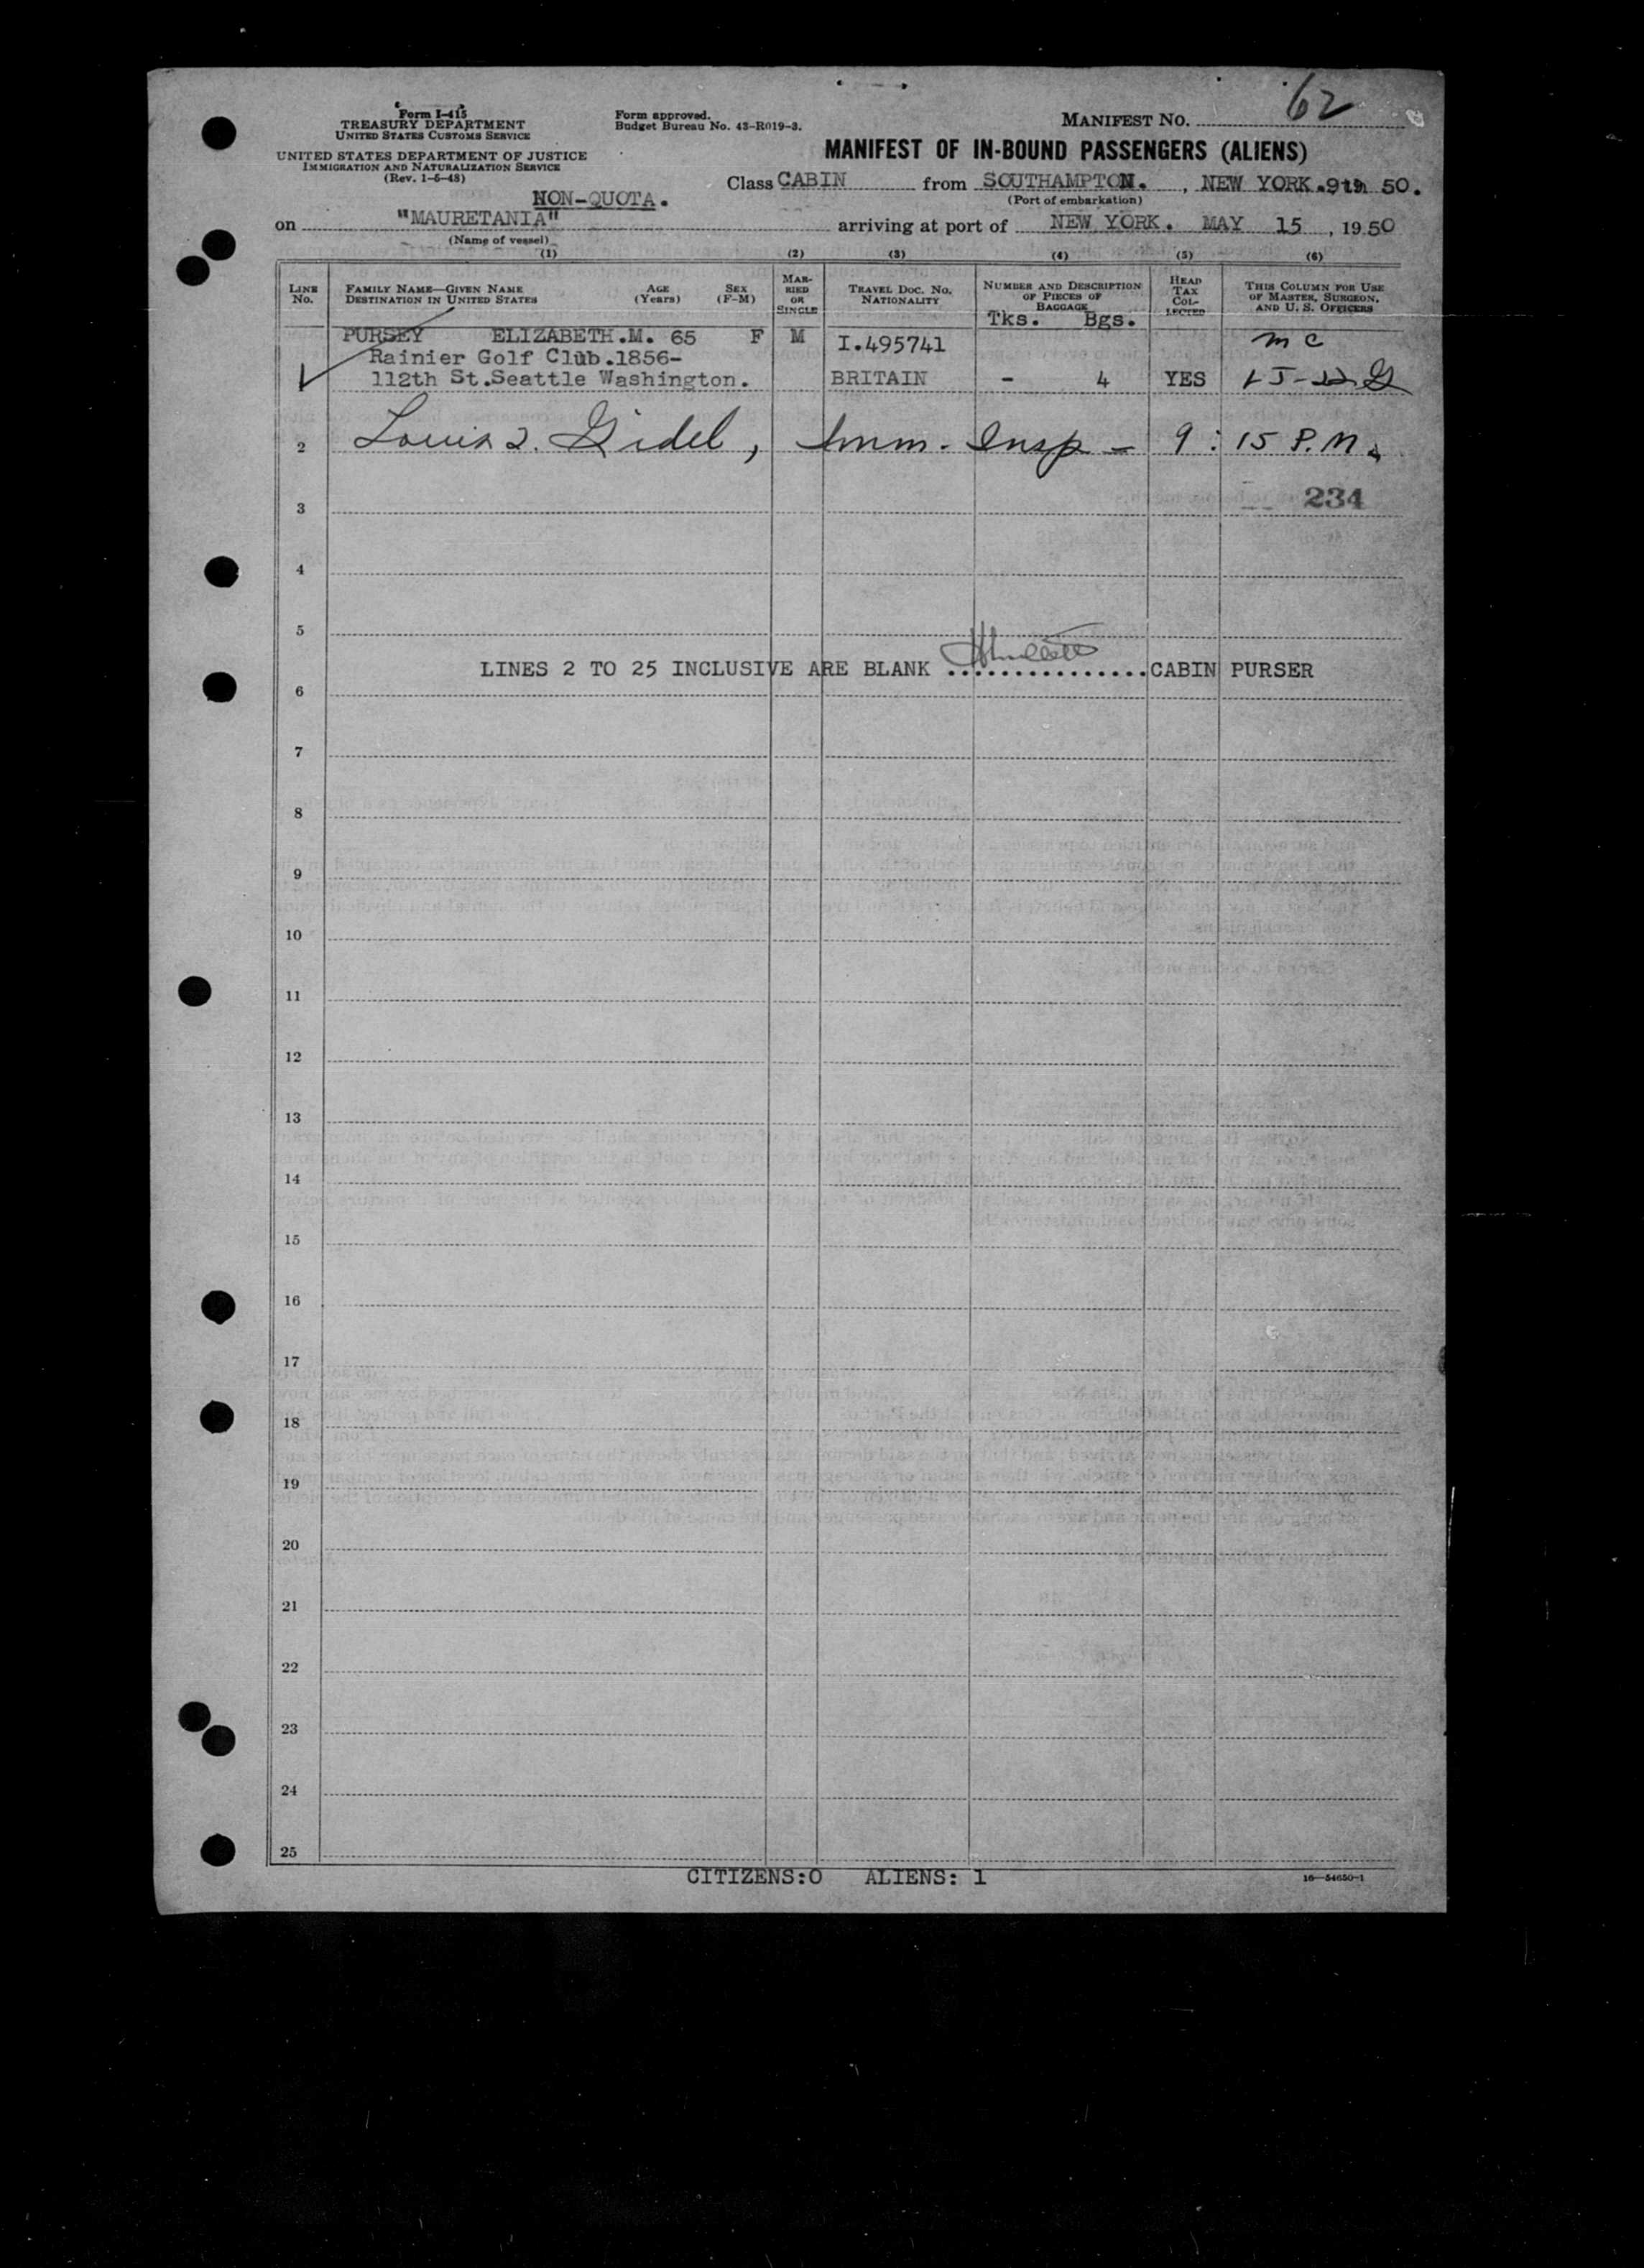 62
Form I-415
TREASURY DEPARTMENT
UNITED STATES CUSTOMS SERVICE
Form approved.
Budget Bureau No. 43-R019-3.
MANIFEST NO.
UNITED STATES DEPARTMENT OF JUSTICE
IMMIGRATION AND NATURALIZATION SERVICE
(Rev. 1-6-48)
MANIFEST OF IN-BOUND PASSENGERS (ALIENS)
NON-QUOTA.
Class CABIN from SOUTHAMPTON. , NEW YORK. 9th 50.
(Port of embarkation)
on "MAURETANIA" arriving at port of NEW YORK. MAY 15 , 1950
(Name of vessel)
(1) (2) (3) (4) (5) (6)
LINE No.
FAMILY NAME—GIVEN NAME
DESTINATION IN UNITED STATES
AGE (Years)
SEX (F-M)
MARRIED OR SINGLE
TRAVEL DOC. NO.
NATIONALITY
NUMBER AND DESCRIPTION
OF PIECES OF
BAGGAGE
Tks. Bgs.
HEAD TAX COLLECTED
THIS COLUMN FOR USE
OF MASTER, SURGEON,
AND U. S. OFFICERS
PURSEY ELIZABETH.M. 65 F M I.495741 mc
Rainier Golf Club.1856-
112th St.Seattle Washington. BRITAIN - 4 YES
2 Imm. Insp - 9:15 P.M.
234
3
4
5
LINES 2 TO 25 INCLUSIVE ARE BLANK ............... CABIN PURSER
6
7
8
9
10
11
12
13
14
15
16
17
18
19
20
21
22
23
24
25
CITIZENS:0 ALIENS: 1
16—54650-1